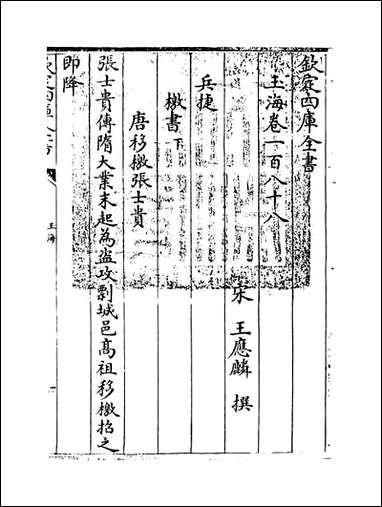 欽定四庫全書
玉海卷一百八十八
宋 王應麟 撰
兵捷
檄書下
唐移檄張士貴
張士貴傳隋大業末起為盗攻剽城邑高祖移檄招之
即降
玉海